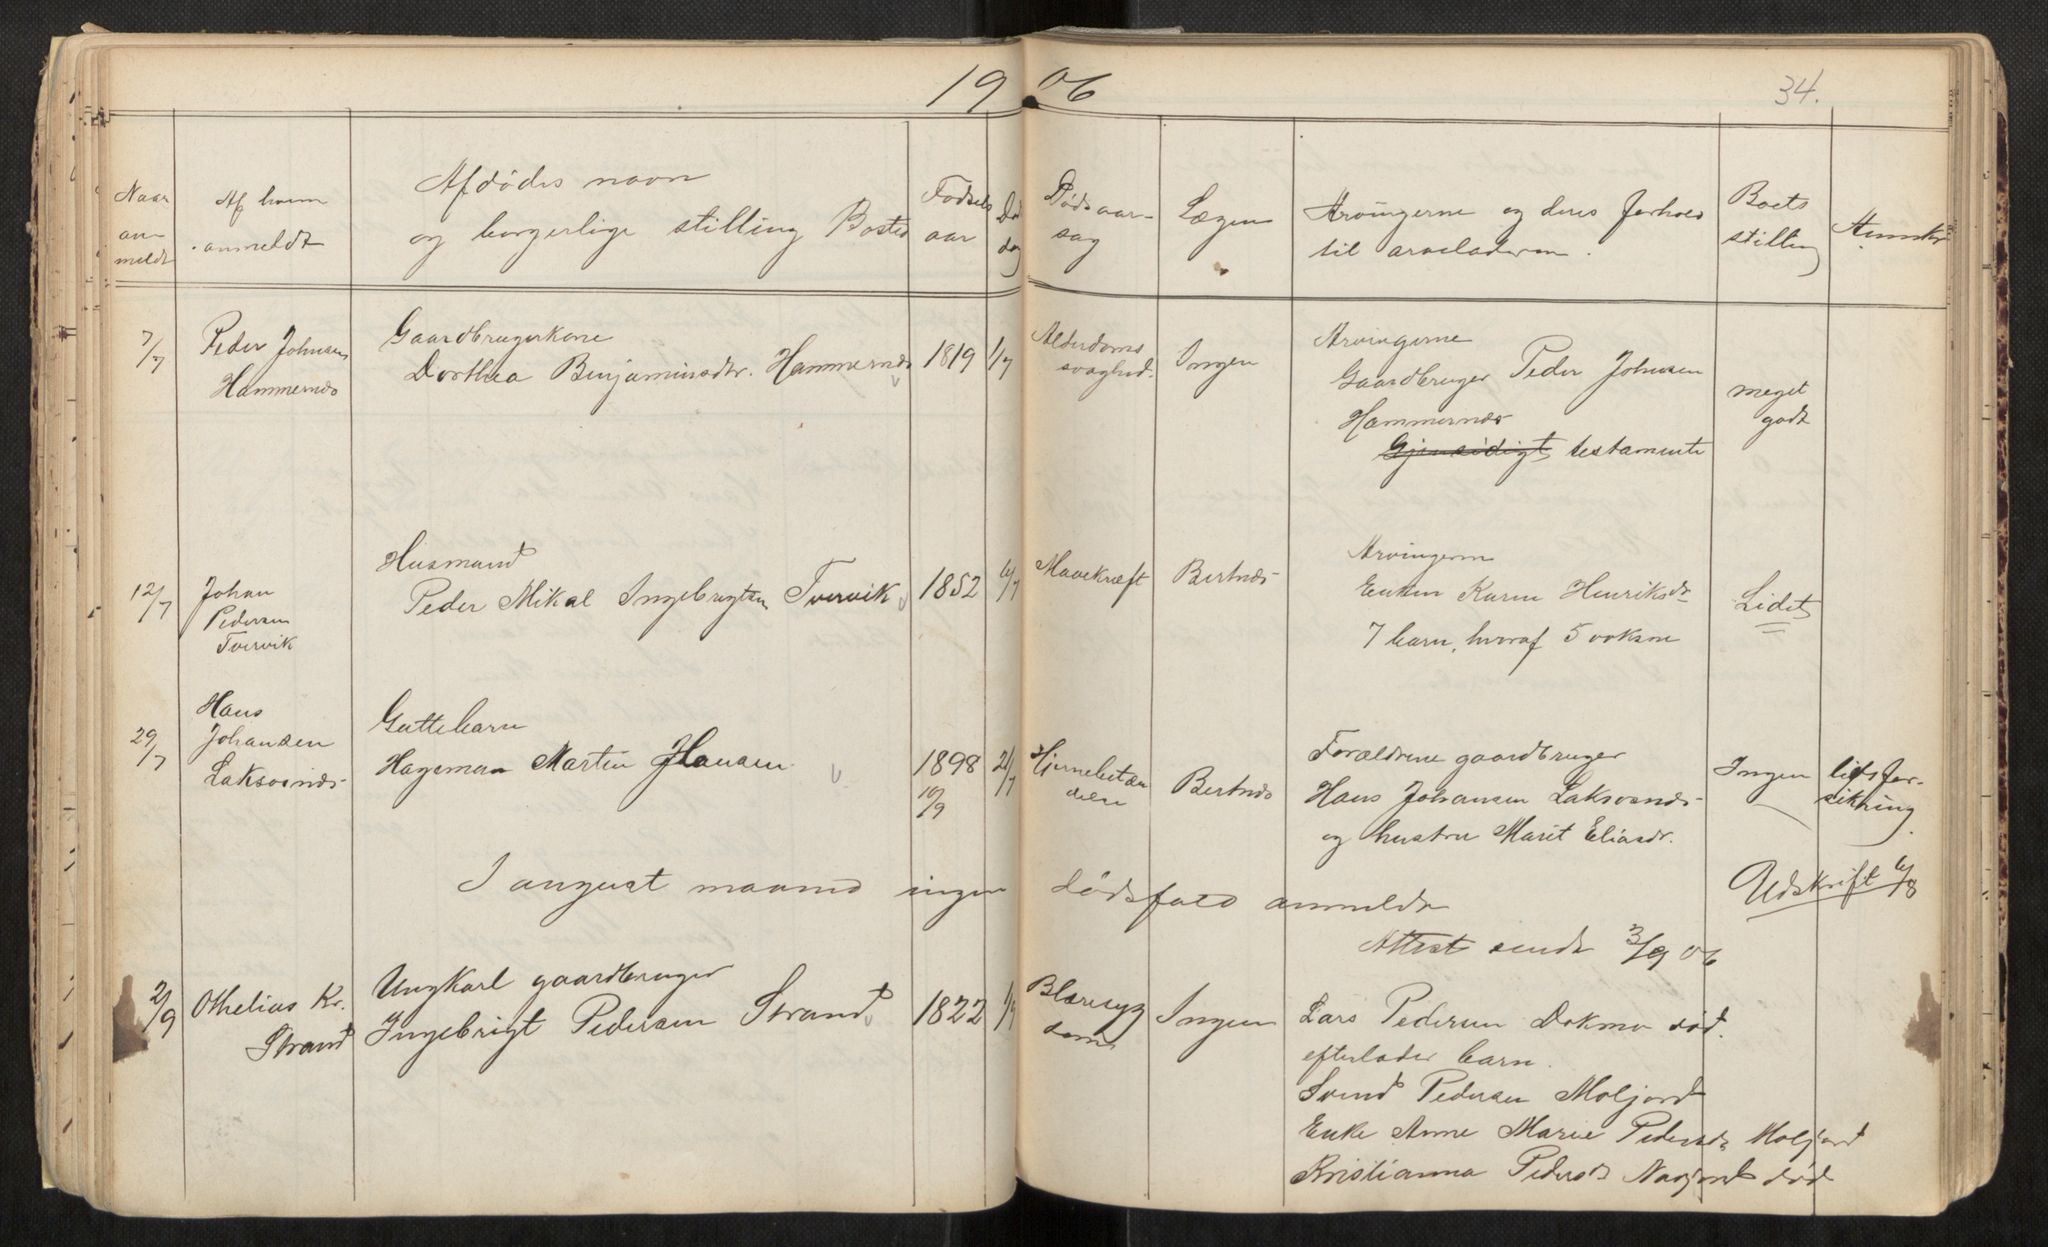 1906
34.
Naar an- meldt
Af hvem anmeldt
Afdødes navn
og borgerlige stilling Bosted
Fødsels aar
Død dag
Dødsaar- sag
Lægen
Arvingerne og deres forhold
til arveladeren.
Boets stilling
Anmerk
7/7
Peder Johnsen
Hammernes
Gaardbrugerkone
Dorthea Benjaminsdtr. Hammernes
1819
1/7
Alderdoms
svaghed.
Ingen
Arvingerne
Gaardbruger Peder Johnsen
Hammernes
Gjensidigt testamente
meget
godt
12/7
Johan
Pedersen
Tvervik
Husmand
Peder Mikal Ingebrigtsen Tvervik
1852
6/7
Mavekræft
Bertnes
Arvingerne
Enken Karen Henriksdr
7 barn, hvoraf 5 voksne
Lidet
29/7
Hans
Johansen
Laksosnes
Guttebarn
Hagsman Martin Hansen
1898
10/9
21/7
Hjernebetæn
delse
Bertnes
Forældrene gaardbruger
Hans Johansen Laksosnes
og hustru Marit Eliasdr.
Ingen livsfor-
sikring
I august maaned ingen dødsfald anmeldt
Udskrift 6/8
Attest sendt 3/9 06
2/9
Othelius Kr.
Strand
Ungkarl gaardbruger
Ingebrigt Pedersen Strand
1822
1/9
Blæresyg
dom
Ingen
Lars Pedersen Dokmo død.
efterlader barn.
Svend Pedersen Moljord
Enke Anne Marie Pedersdr Moljord
Kristianna Pedersdr død